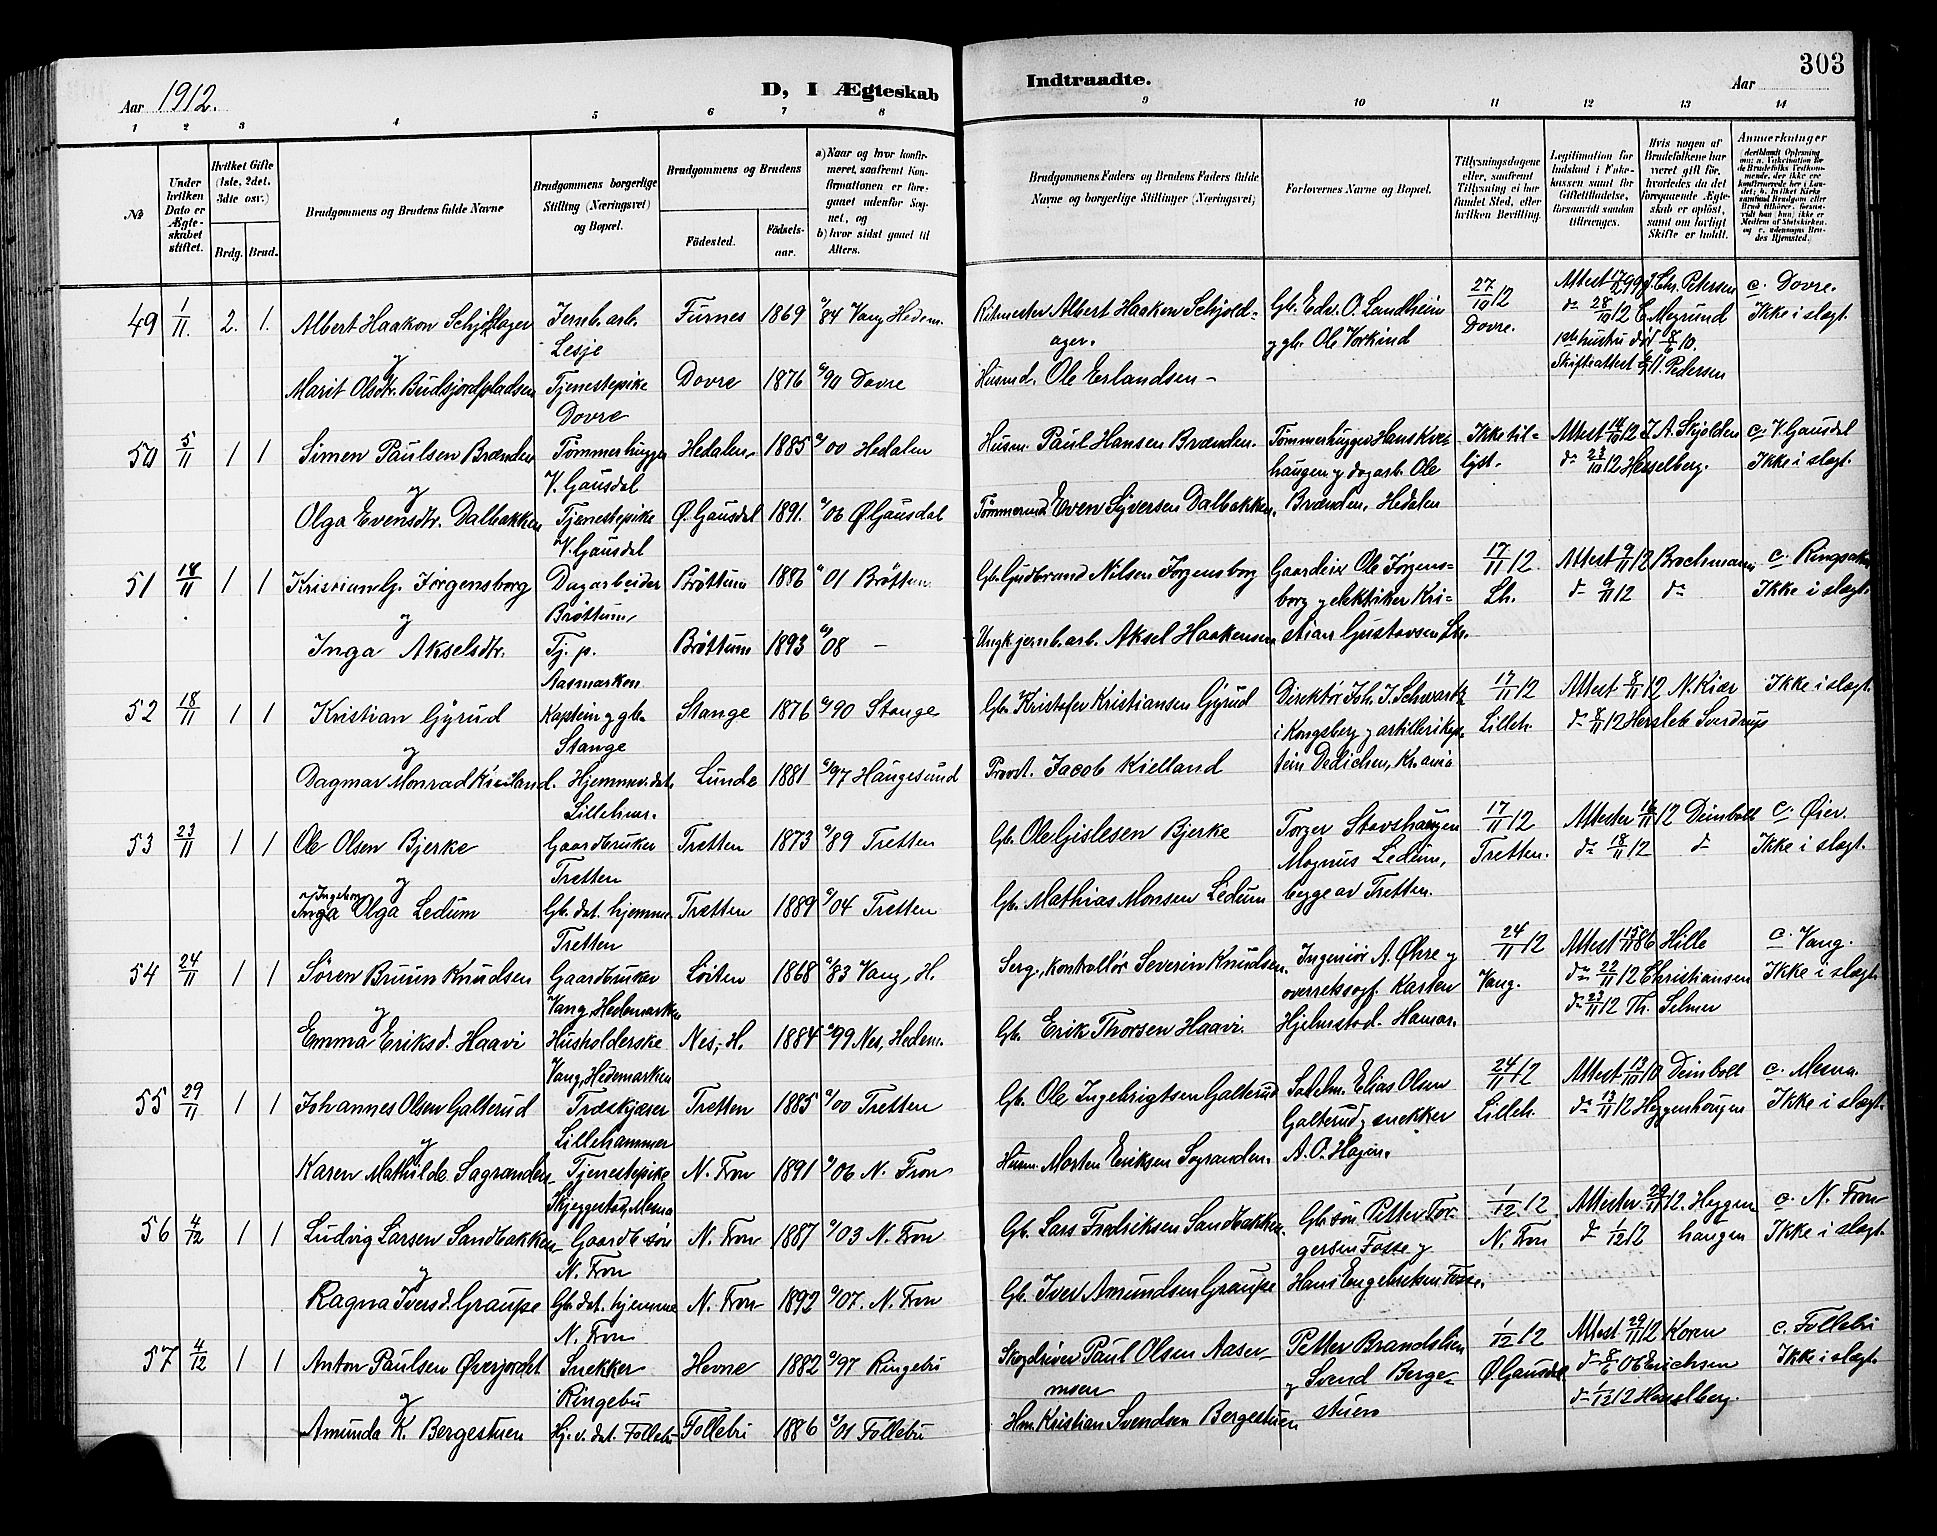 303
Aar 1912.
D, I Ægteskab Indtraadte.
Aar
1 2 3 4 5 6 7 8 9 10 11 12 13 14
№
Under hvilken Dato er Ægteskabet stiftet.
Hvilket Gifte (1ste, 2det, 3dte osv.)
Brdg. Brud.
Brudgommens og Brudens fulde Navne
Brudgommens borgerlige Stilling (Næringsvei) og Bopæl.
Brudgommens og Brudens
Fødested. Fødselsaar.
a) Naar og hvor konfirmeret, saafremt Konfirmationen er foregaaet udenfor Sognet, og
b) hvor sidst gaaet til Alters.
Brudgommens Faders og Brudens Faders fulde Navne og borgerlige Stillinger (Næringsvei)
Forlovernes Navne og Bopæl.
Tillysningsdagene eller, saafremt Tillysning ei har fundet Sted, efter hvilken Bevilling.
Legitimation for Indskud i Enkekassen samt for Giftetilladelse, forsaavidt saadan tiltrænges.
Hvis nogen af Brudefolkene har været gift før, hvorledes da det foregaaende Ægteskab er opløst, samt om lovligt Skifte er holdt.
Anmerkninger
49 1/11. 2. 1. Albert Haakon Schjoldager Jernb. arb. Furnes 1869 84 Vang Hedem. Ritmester Albert Haakon Schjold- Gb. Edv. O. Landheim 27/10 12 Attest 17/12 99 J. Chr. Petersen c. Dovre.
og Lesje ager. og gb. Ole Vorkind Dovre. do 28/10 12 E. Mogrund Ikke i slegt
1ste hustru død 8/6 10.
Marit Olsdtr. Budsjordpladsen Tjenestepike Dovre 1876 90 Dovre Husmd. Ole Erlandsen - Skifteattest Pedersen
Dovre
50 5/11 1 1 Simen Paulsen Brænden Tømmerhugger Hedalen 1885 00 Hedalen Husm. Paul Hansen Brænden. Tømmerhugger Hans Kves- Ikke til- Attest 12 J. A. Skjolden c. V. Gausdal
og V. Gausdal haugen og dagarb. Ole lyst. do 23/10 12 Hesselberg. Ikke i slegt.
Olga Evensdtr. Dalbakken Tjenestepike Ø. Gausdal 1891. 06 Ø Gausdal Tømmermd Even Syversen Dalbakken. Brænden, Hedalen
V. Gausdal
51 18/11 1 1 Kristian G. Jørgensborg Dagarbeider Brøttum 1886 01 Brøttum Gb. Gudbrand Nilsen Jørgensborg Gaardeier Ole Jørgens- 17/11 12. Attest 9/11 12 Brochmann c. Ringsaker
og Brøttum borg og elektriker Kri- Lh. do 9/11 12 do Ikke i slegt.
Inga Akselsdtr. Tj. p. Brøttum 1893 08 - Ungk. jernb. arb. Aksel Haakensen stian Gustavsen Lh.
Aasmarken
52 18/11 1 1 Kristian Gyrud Kaptein og gbr. Stange 1876 90 Stange Gb. Kristofer Kristiansen Gyrud Direktør Joh. J. Schwartz 17/11 12 Attest 8/11 12 N. Kiær Ikke i slegt.
og Stange i Kongsberg og artillerikap- Lilleh. do 8/11 12 Hersleb Sverdrup
Dagmar Monrad Kielland. Hjemmev. dat. Lunde 1881 97 Haugesund Provst. Jacob Kielland tein Dedichen, Kr.ania
Lillehmr.
53 23/11 1 1 Ole Olsen Bjerke Gaardbruker Tretten 1873 89 Tretten Gb. Ole Gislesen Bjerke Torger Stavshaugen 17/11 12 Attester 16/11 12 Deinboll c. Øier.
og Tretten Magnus Ledum, Tretten. do 18/11 12 do Ikke i slegt.
Ingeborg
Inga Olga Ledum Gb. dat. hjemme Tretten 1889 04 Tretten Gb. Mathias Monsen Ledum begge av Tretten.
Tretten
54 24/11 1 1 Søren Bruun Knudsen Gaardbruker Løiten 1868 83 Vang, H. Serg., kontrollør Severin Knudsen. Ingeniør A. Øhre og 24/11 12 Attest 86 Hille c. Vang.
og Vang, Hedemarken overretssagf. Karsten Vang. do 22/11 12 Christiansen Ikke i slegt.
Emma Eriksd. Haavi Husholderske Nes, H. 1884 99 Nes, Hedem. Gb. Erik Thorsen Haavi. Hjelmstad. Hamar. do 23/11 12 Th. Selmer
Vang, Hedemarken
55 29/11 1 1 Johannes Olsen Galterud Træskjærer Tretten 1885 00 Tretten Gb. Ole Ingebrigtsen Galterud Sadelm. Elias Olsen 24/11 12 Attest 10 Deinboll c. Mesna.
og Lillehammer Galterud og snekker Lilleh. do 13/11 12 Heggenhougen Ikke i slegt.
Karen Mathilde Sagranden Tjenestepike N. Fron 1891 06 N. Fron Husm. Morten Eriksen Sagranden. A. O. Hagen.
Skjeggestad, Mesna
56 4/12 1 1 Ludvig Larsen Sandbakken Gaardb. søn N. Fron 1887 03 N. Fron Gb. Lars Fredriksen Sandbakken. Gb. søn Petter Tor- 1/12 12. Attester 29/11 12. Heggen c. N. Fron
og N. Fron gersen Fosse og N. Fron do 1/12 12 haugen Ikke i slegt.
Ragna Iversd. Graupe Gb. dat. hjemme N. Fron 1892 07. N. Fron Gb. Iver Amundsen Graupe Hans Engebretsen Fosse.
N. Fron
57 4/12 1 1 Anton Paulsen Øverjordet Snekker Hevne 1882 97 Ringebu Skogdriver Paul Olsen Aaser- Petter Brandslien 1/12 12 Attest 29/11 12 Koren c. Follebu
og Ringebu moen og Svend Berge- Ø Gausdal do 8/6 06 Erichsen Ikke i slegt.
Amunda K. Bergestuen Hj. v. dat. Follebu Follebu 1886 01 Follebu Hm. Kristian Svendsen Bergestuen stuen do 1/12 12 Hesselberg.